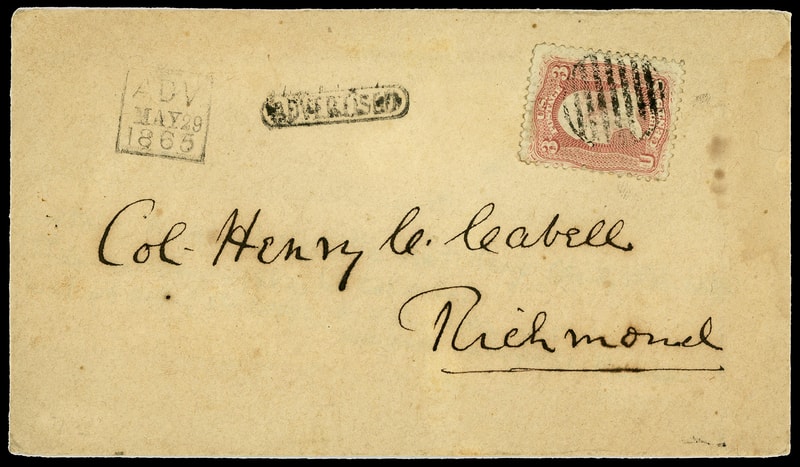 ADV
MAY 29
1865
ADVERTISED
3 U.S. 3
U
Col. Henry C. Cabell
Richmond